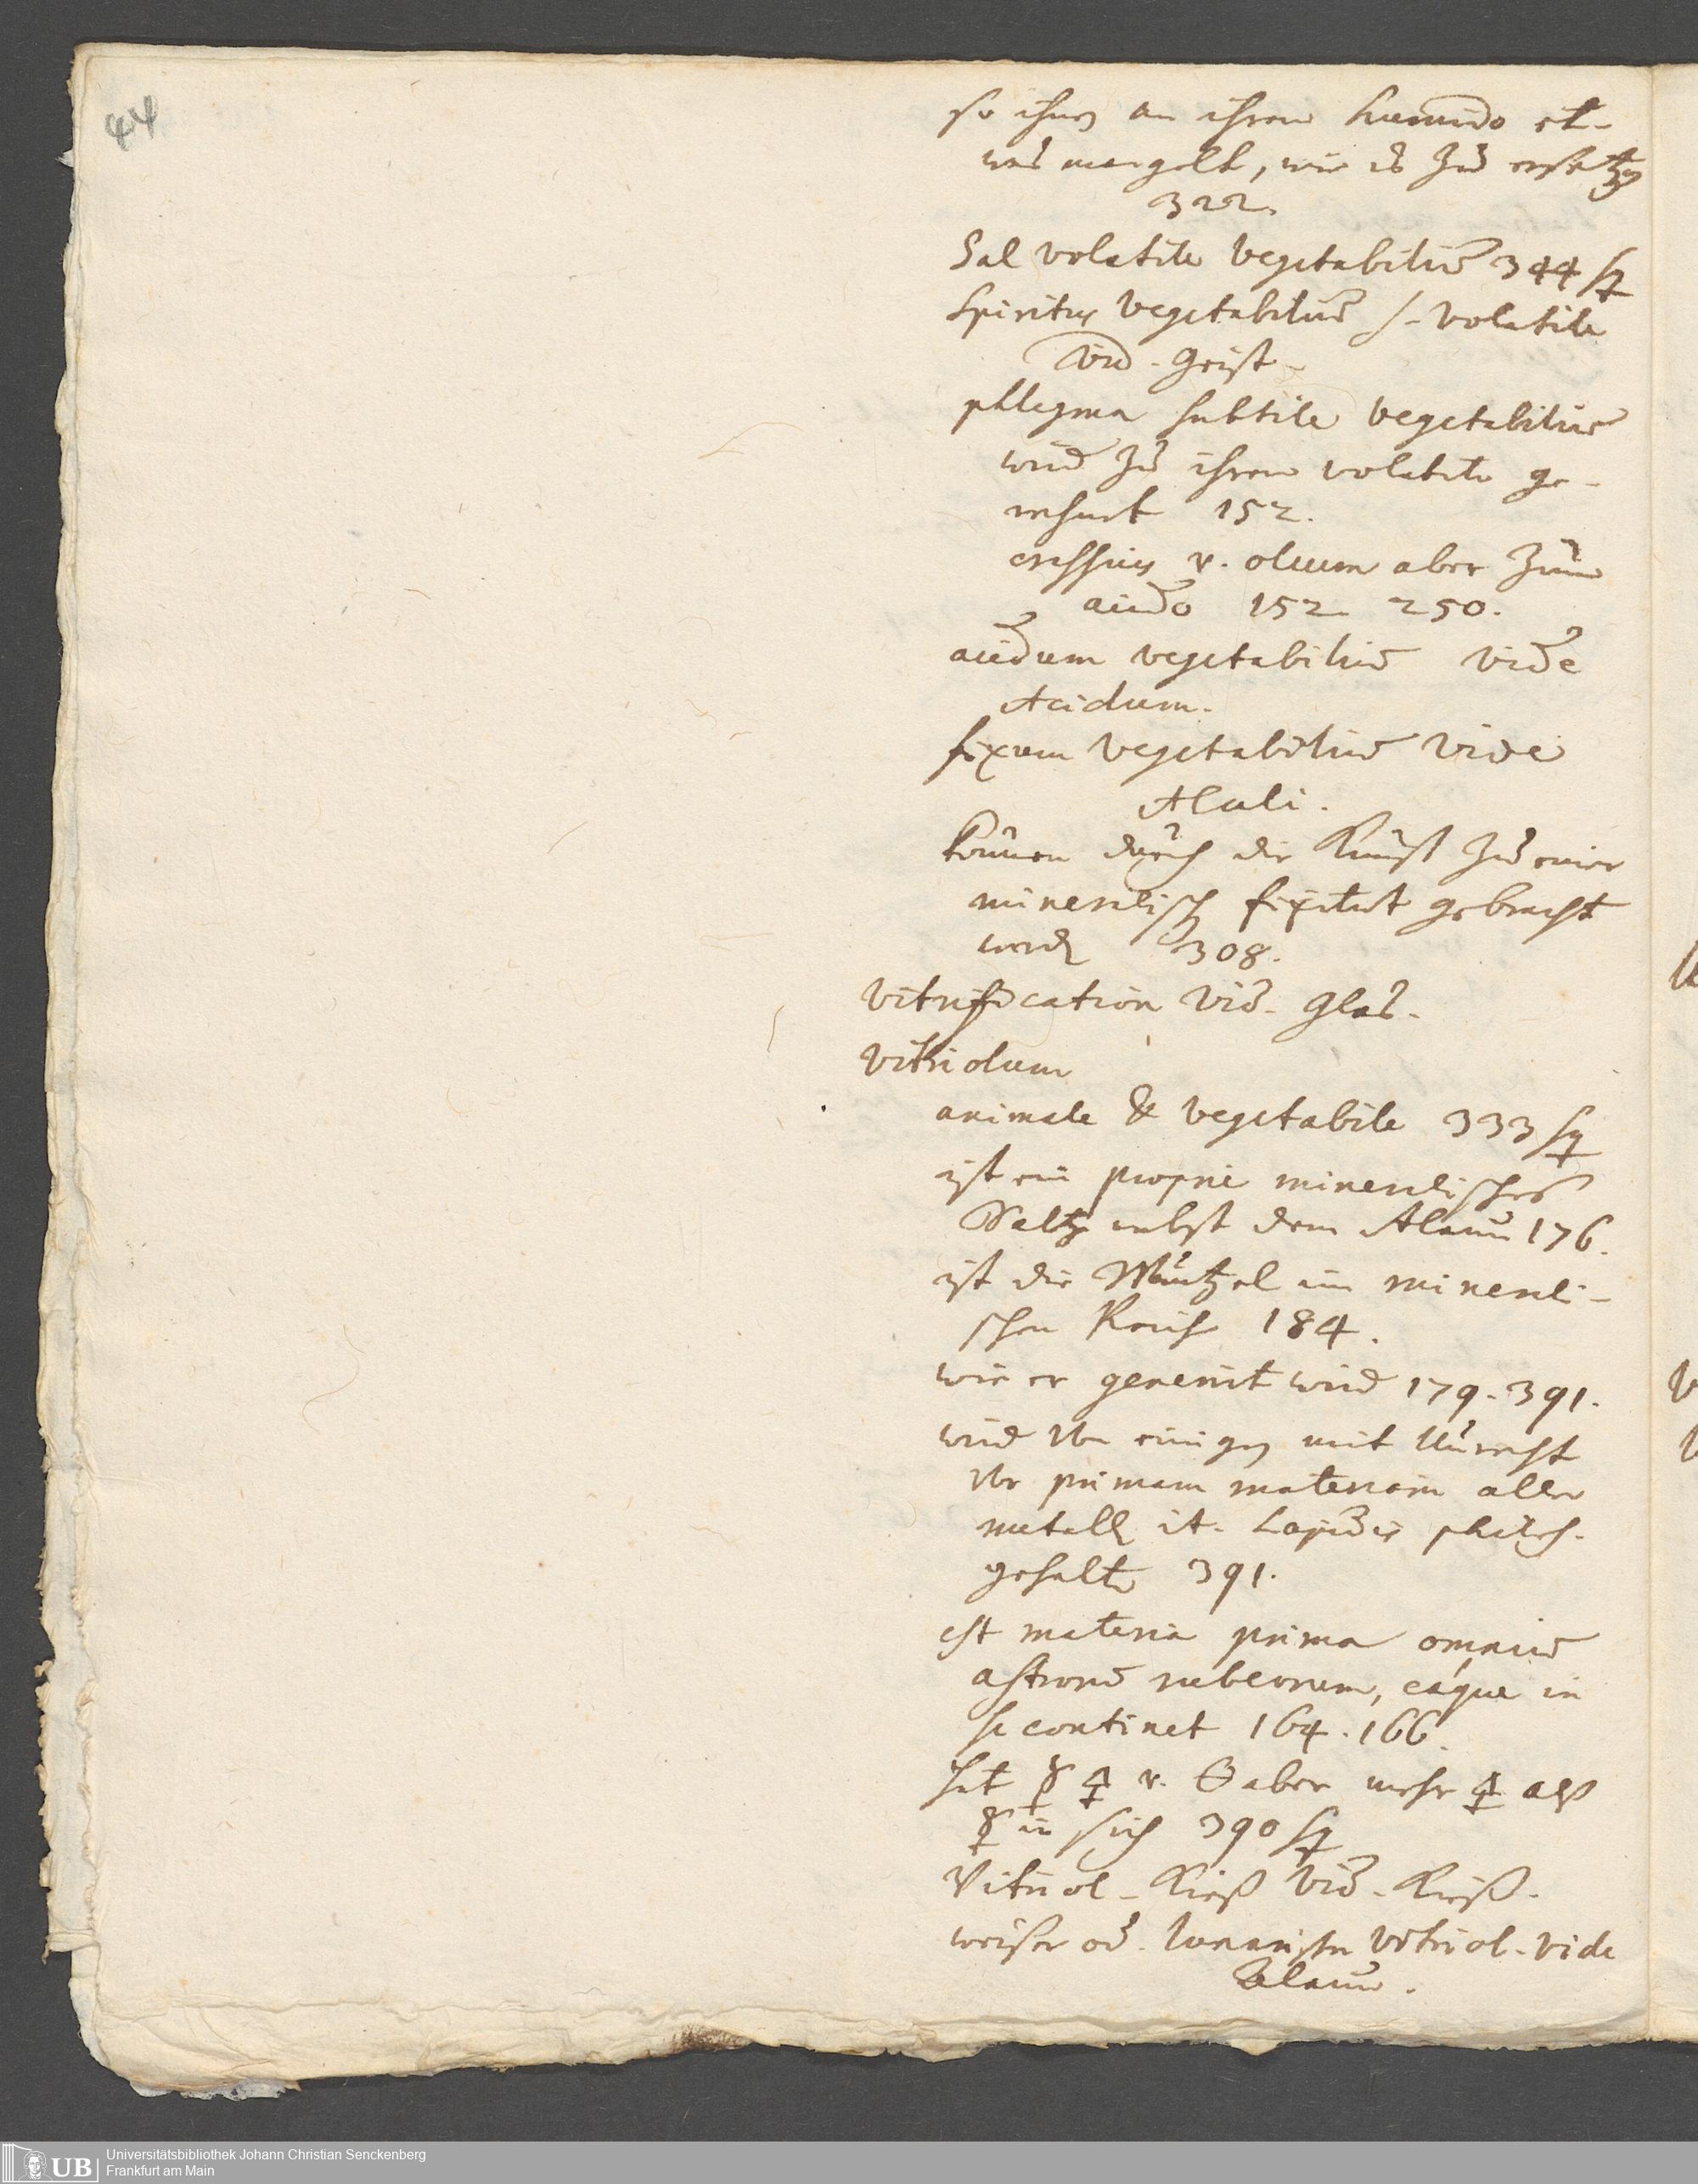 44
so ihnen an ihrem humido et-
was mangelt, wie es zu ersetzen
322.
Sal volatile vegetabilium 344 sq
Spiritus vegetabilium s. volatile
vid. Geist.
phlegma subtile vegetabilium
wird zu ihrem volatile ge-
rechnet 152.
crassius v. oleum aber zum
acido 152 250.
acidum vegetabilium vide
Acidum.
fixum vegetabilium vide
Alcali.
können durch die Kunst zu einer
mineralischen fixitet gebracht
werden 308.
Vitrification vid. Glas.
Vitriolum
animale & vegetabile 333 sq
ist ein proprie mineralisches
Saltz nebst dem Alaun 176.
ist die Wurtzel im minerali-
schen Reich 184.
wie er generirt wird 179. 391.
wird von einigen mit Unrecht
vor primam materiam aller
metallen it. Lapidis philos.
gehalten 391.
est materia prima omnium
astrorum rubeorum, eáque in
se continet 164. 166.
hat ☿ 🜍 v. 🜔 aber mehr 🜍 alß
☿ in sich 390 sq
Vitriol-Kieß vid. Kieß.
weiser od. lunarischer Vitriol. vide
Alaun.
UB
Universitätsbibliothek Johann Christian Senckenberg
Frankfurt am Main